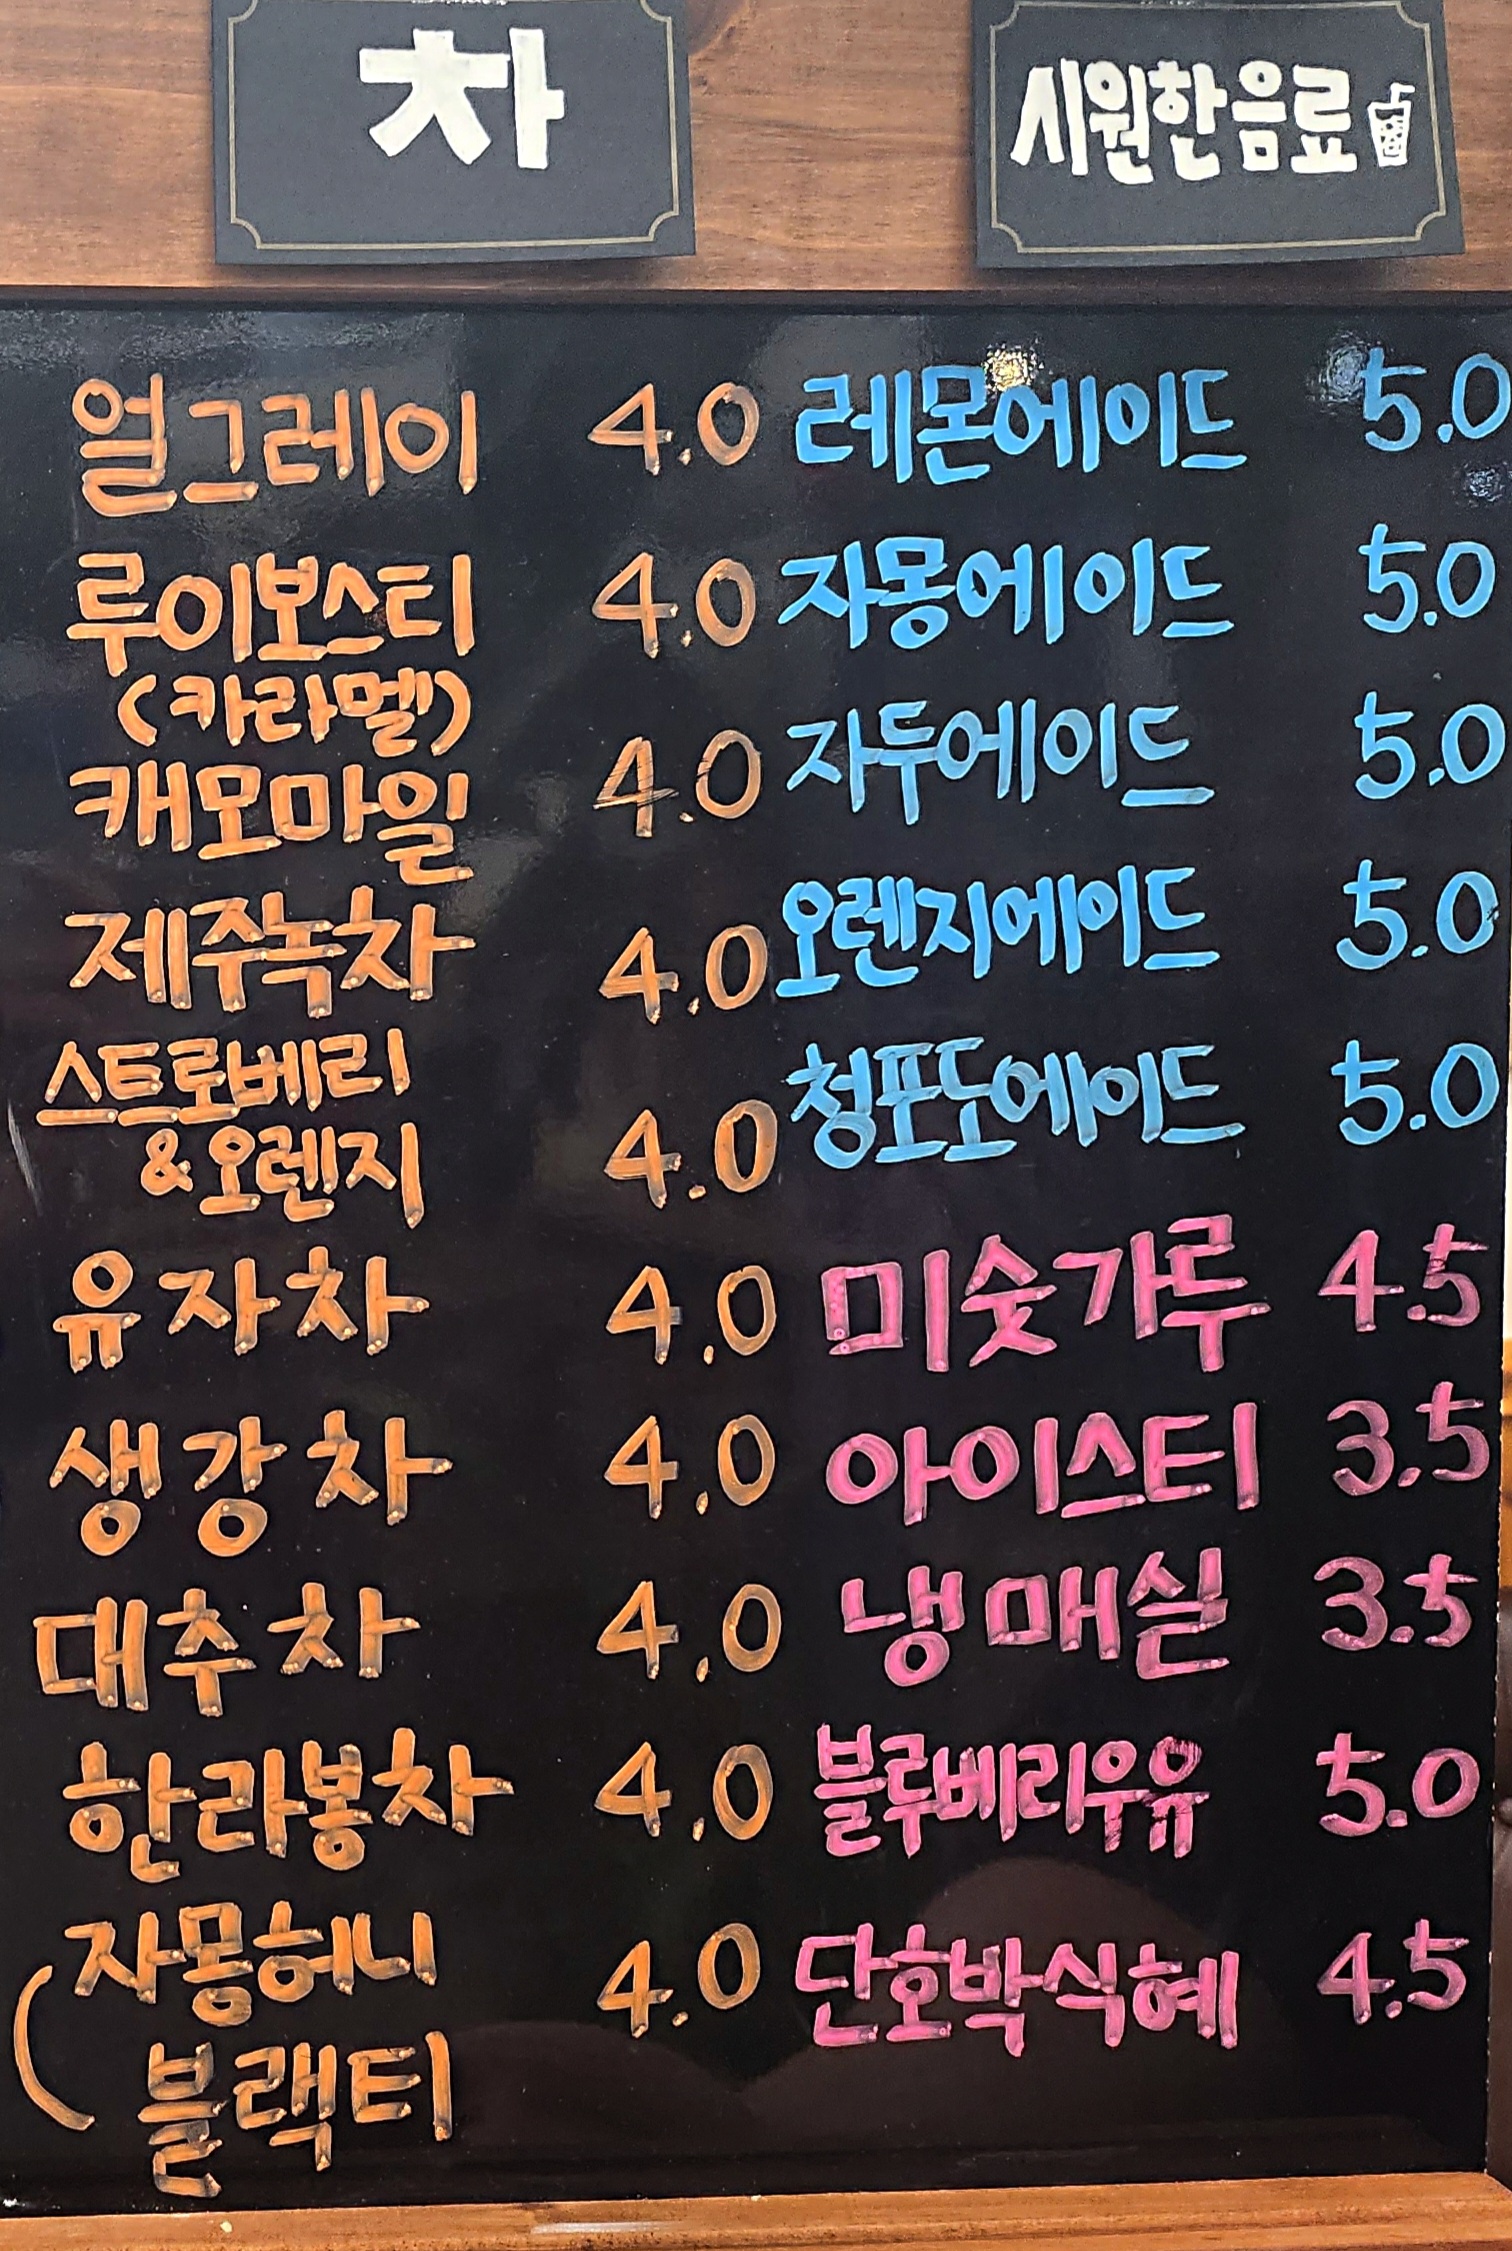 차
얼그레이 4.0
루이보스티 4.0
(카라멜)
캐모마일 4.0
제주녹차 4.0
스트로베리
&오렌지 4.0
유자차 4.0
생강차 4.0
대추차 4.0
한라봉차 4.0
자몽허니 4.0
블랙티
시원한음료
레몬에이드 5.0
자몽에이드 5.0
자두에이드 5.0
오렌지에이드 5.0
청포도에이드 5.0
미숫가루 4.5
아이스티 3.5
냉매실 3.5
블루베리우유 5.0
단호박식혜 4.5